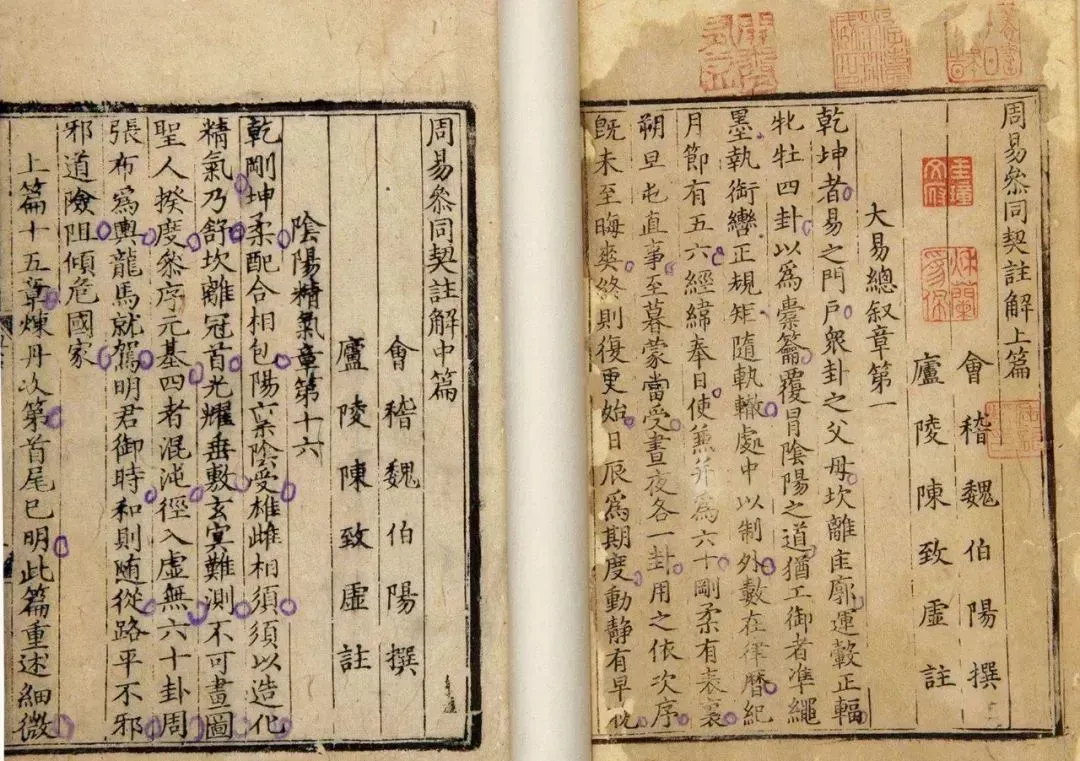 周易叅同契註解上篇
會稽魏伯陽撰
廬陵陳致虛註
大易總叙章第一
乾坤者易之門戶衆卦之父母坎離匡廓運轂正輻
牝牡四卦以爲橐籥覆冒陰陽之道猶工御者凖繩
墨執銜轡正規矩隨軌轍處中以制外數在律曆紀
月節有五六經緯奉日使蒹并爲六十剛柔有表裏
朔旦屯直事至暮蒙當受晝夜各一卦用之依次序
旣未至晦爽終則復更始日辰爲期度動靜有早
周易叅同契註解中篇
會稽魏伯陽撰
廬陵陳致虛註
陰陽精氣章第十六
乾剛坤柔配合相包陽禀陰受雄雌相須須以造化
精氣乃舒坎離冠首光耀垂敷玄冥難測不可畫圖
聖人揆度叅序元基四者混沌徑入虛無六十卦周
張布爲輿龍馬就駕明君御時和則随從路平不邪
邪道險阻傾危國家
上篇十五章煉丹次第首尾已明此篇重述細微